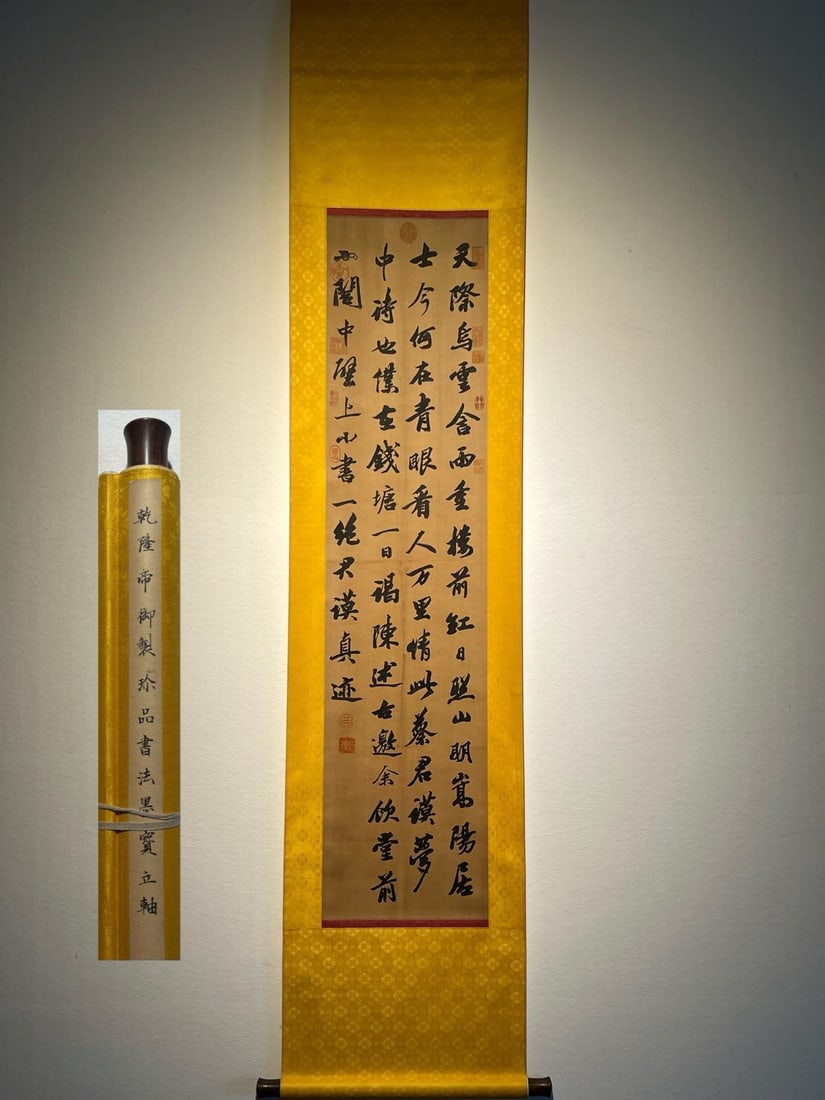 天際烏雲含雨重樓前紅日照山明嵩陽居
士今何在青眼看人万里情此蔡君謨夢
中詩也僕在錢塘一日謁陳述古邀余飲堂前
小閣中壁上小書一絕君謨真迹
乾隆帝御製珍品書法墨寶立軸